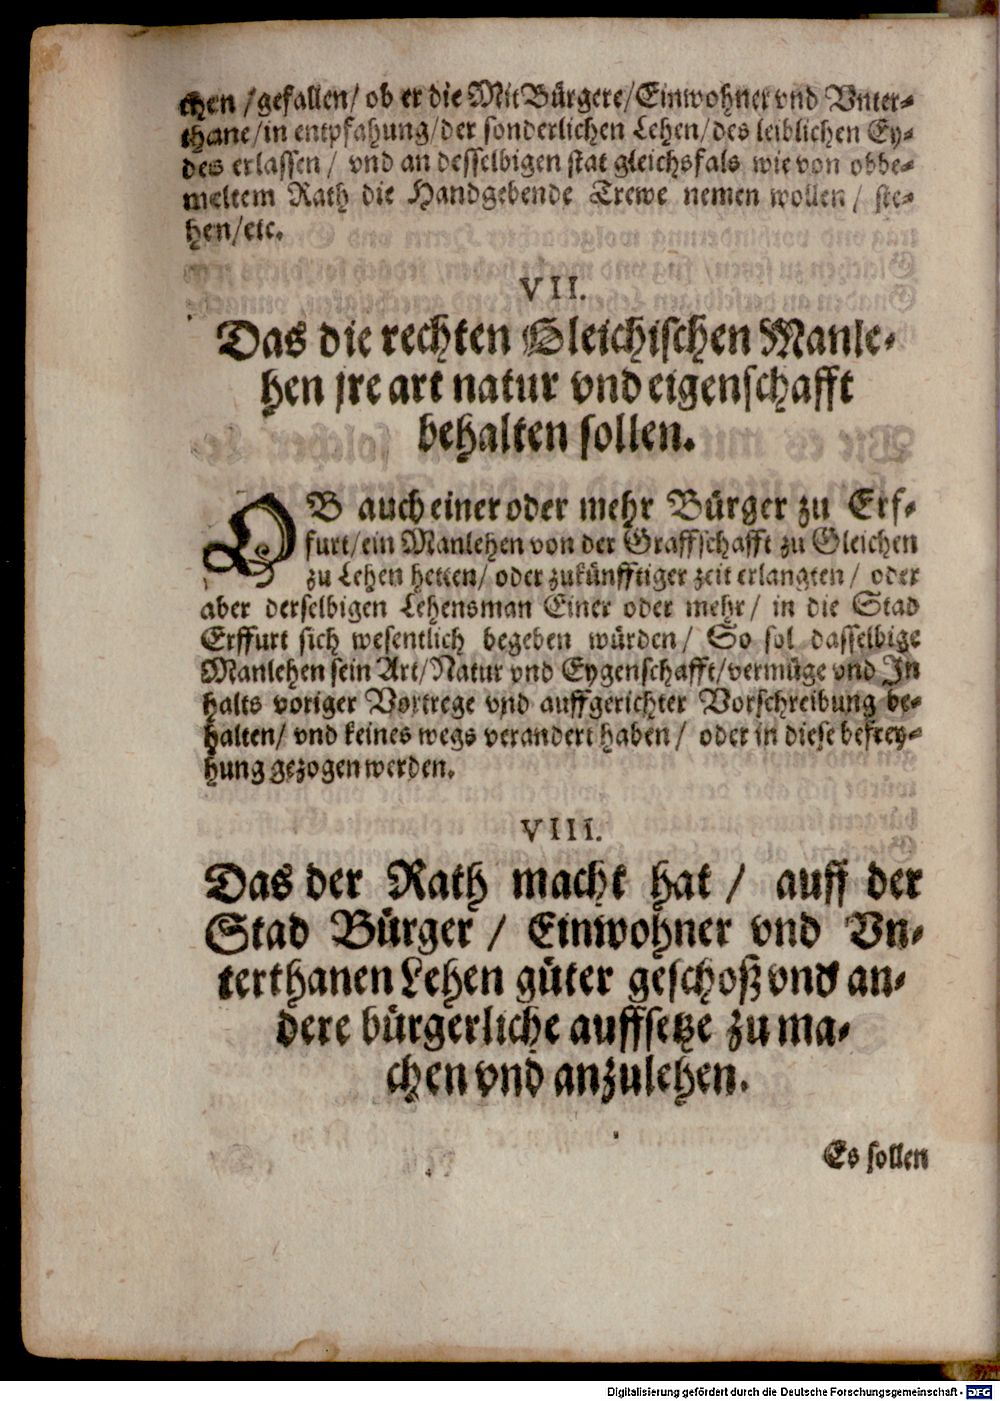 chen /gefallen/ ob er die MitBürgere/Einwohner vnd Vnter-
thane/in entpfahung/der sonderlichen Lehen/des leiblichen Ey-
des erlassen / vnd an desselbigen stat gleichsfals wie von obbe-
meltem Rath die Handgebende Trewe nemen wollen / ste-
hen/etc.
VII.
Das die rechten Gleichischen Manle-
hen jre art natur vnd eigenschafft
behalten sollen.
OB auch einer oder mehr Bürger zu Erf-
furt/ein Manlehen von der Graffschafft zu Gleichen
zu Lehen hetten/ oder zukünfftiger zeit erlangten / oder
aber derselbigen Lehensman Einer oder mehr / in die Stad
Erffurt sich wesentlich begeben würden/ So sol dasselbige
Manlehen sein Art/Natur vnd Eygenschafft/vermüge vnd In
halts voriger Vortrege vnd auffgerichter Vorschreibung be-
halten/ vnd keines wegs verandert haben / oder in diese befrey-
hung gezogen werden.
VIII.
Das der Rath macht hat / auff der
Stad Bürger / Einwohner vnd Vn-
terthanen Lehen güter geschoß vnd an-
dere bürgerliche auffsetze zu ma-
chen vnd anzulehen.
Es sollen
Digitalisierung gefördert durch die Deutsche Forschungsgemeinschaft - DFG